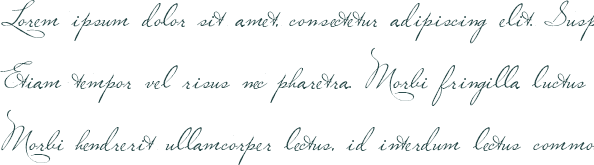 Lorem ipsum dolor sit amet, consectetur adipiscing elit. Susp
Etiam tempor vel risus nec pharetra. Morbi fringilla luctus
Morbi hendrerit ullamcorper lectus, id interdum lectus commo